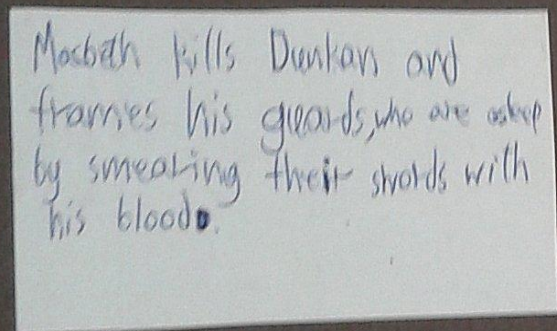 Macbeth kills Dunkan and
frames his guards, who are asleep
by smearing their swords with
his blood.